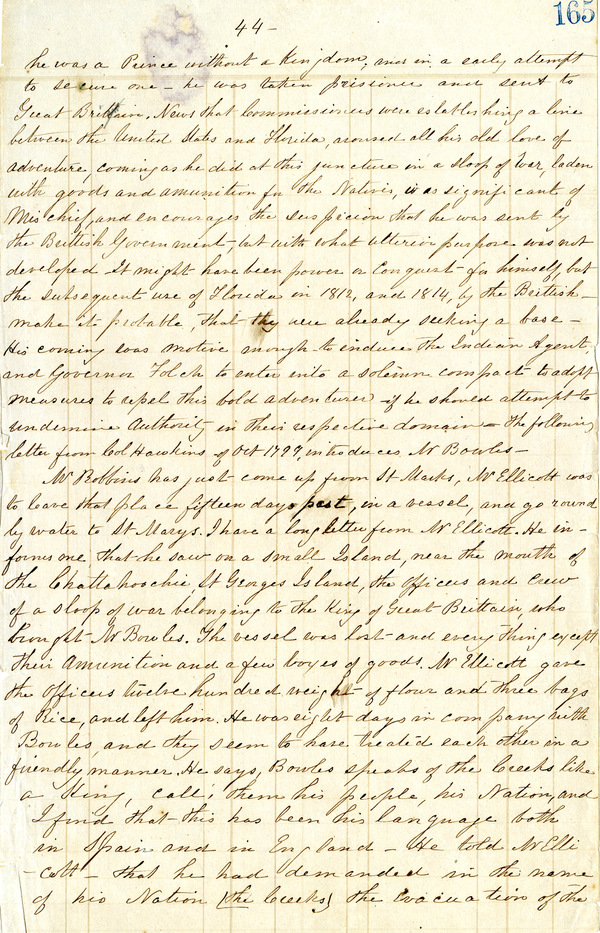 44-
165
he was a Prince without a Kingdom, and in a early attempt
to secure one - he was taken prisioner and sent to
Great Brittain. News that Commissioners were establishing a line
between the United States and Florida, aroused all his old love of
adventure, coming as he did at this juncture in a sloop of War, laden
with goods and amunition for the Natives, was significant of
Mischief, and encourages the suspicion that he was sent by
the Brittish Government, but with what ulterior purpose was not
developed - It might have been power or Conquest - for himself, but
the subsequent use of Florida in 1812, and 1814, by the British -
make it probable, that they were already seeking a base -
His coming was motive enough to induce the Indian Agent,
and Governor Folch to enter into a solemn compact to adopt
measures to repel this bold adventurer - if he should attempt to
undermine Authority in their respective domain - The following
letter from Col Hawkins of Oct 1799, introduces Mr Bowles -
Mr Robbins has just come up from St Marks, Mr Ellicott was
to leave that place fifteen days past, in a vessel, and go round
by water to St Marys. I have a long letter from Mr Ellicott. He in-
forms me that he saw on a small Island, near the mouth of
the Chattahoochie, St Georges Island, the Officers and Crew
of a sloop of war belonging to the King of Great Brittain, who
brought Mr Bowles. The vessel was lost and every thing except
their Amunition and a few boxes of goods. Mr Ellicott gave
the Officers twelve hundred weight of flour and three bags
of Rice, and left him. He was eight days in company with
Bowles, and they seem to have treated each other in a
friendly manner. He says, Bowles speaks of the Creeks like
a King, call's them his people, his Nation, and
I find that this has been his language both
in Spain and in England - He told Mr Elli
-cott - that he had demanded in the name
of his Nation (the Creeks) the evacuation of the